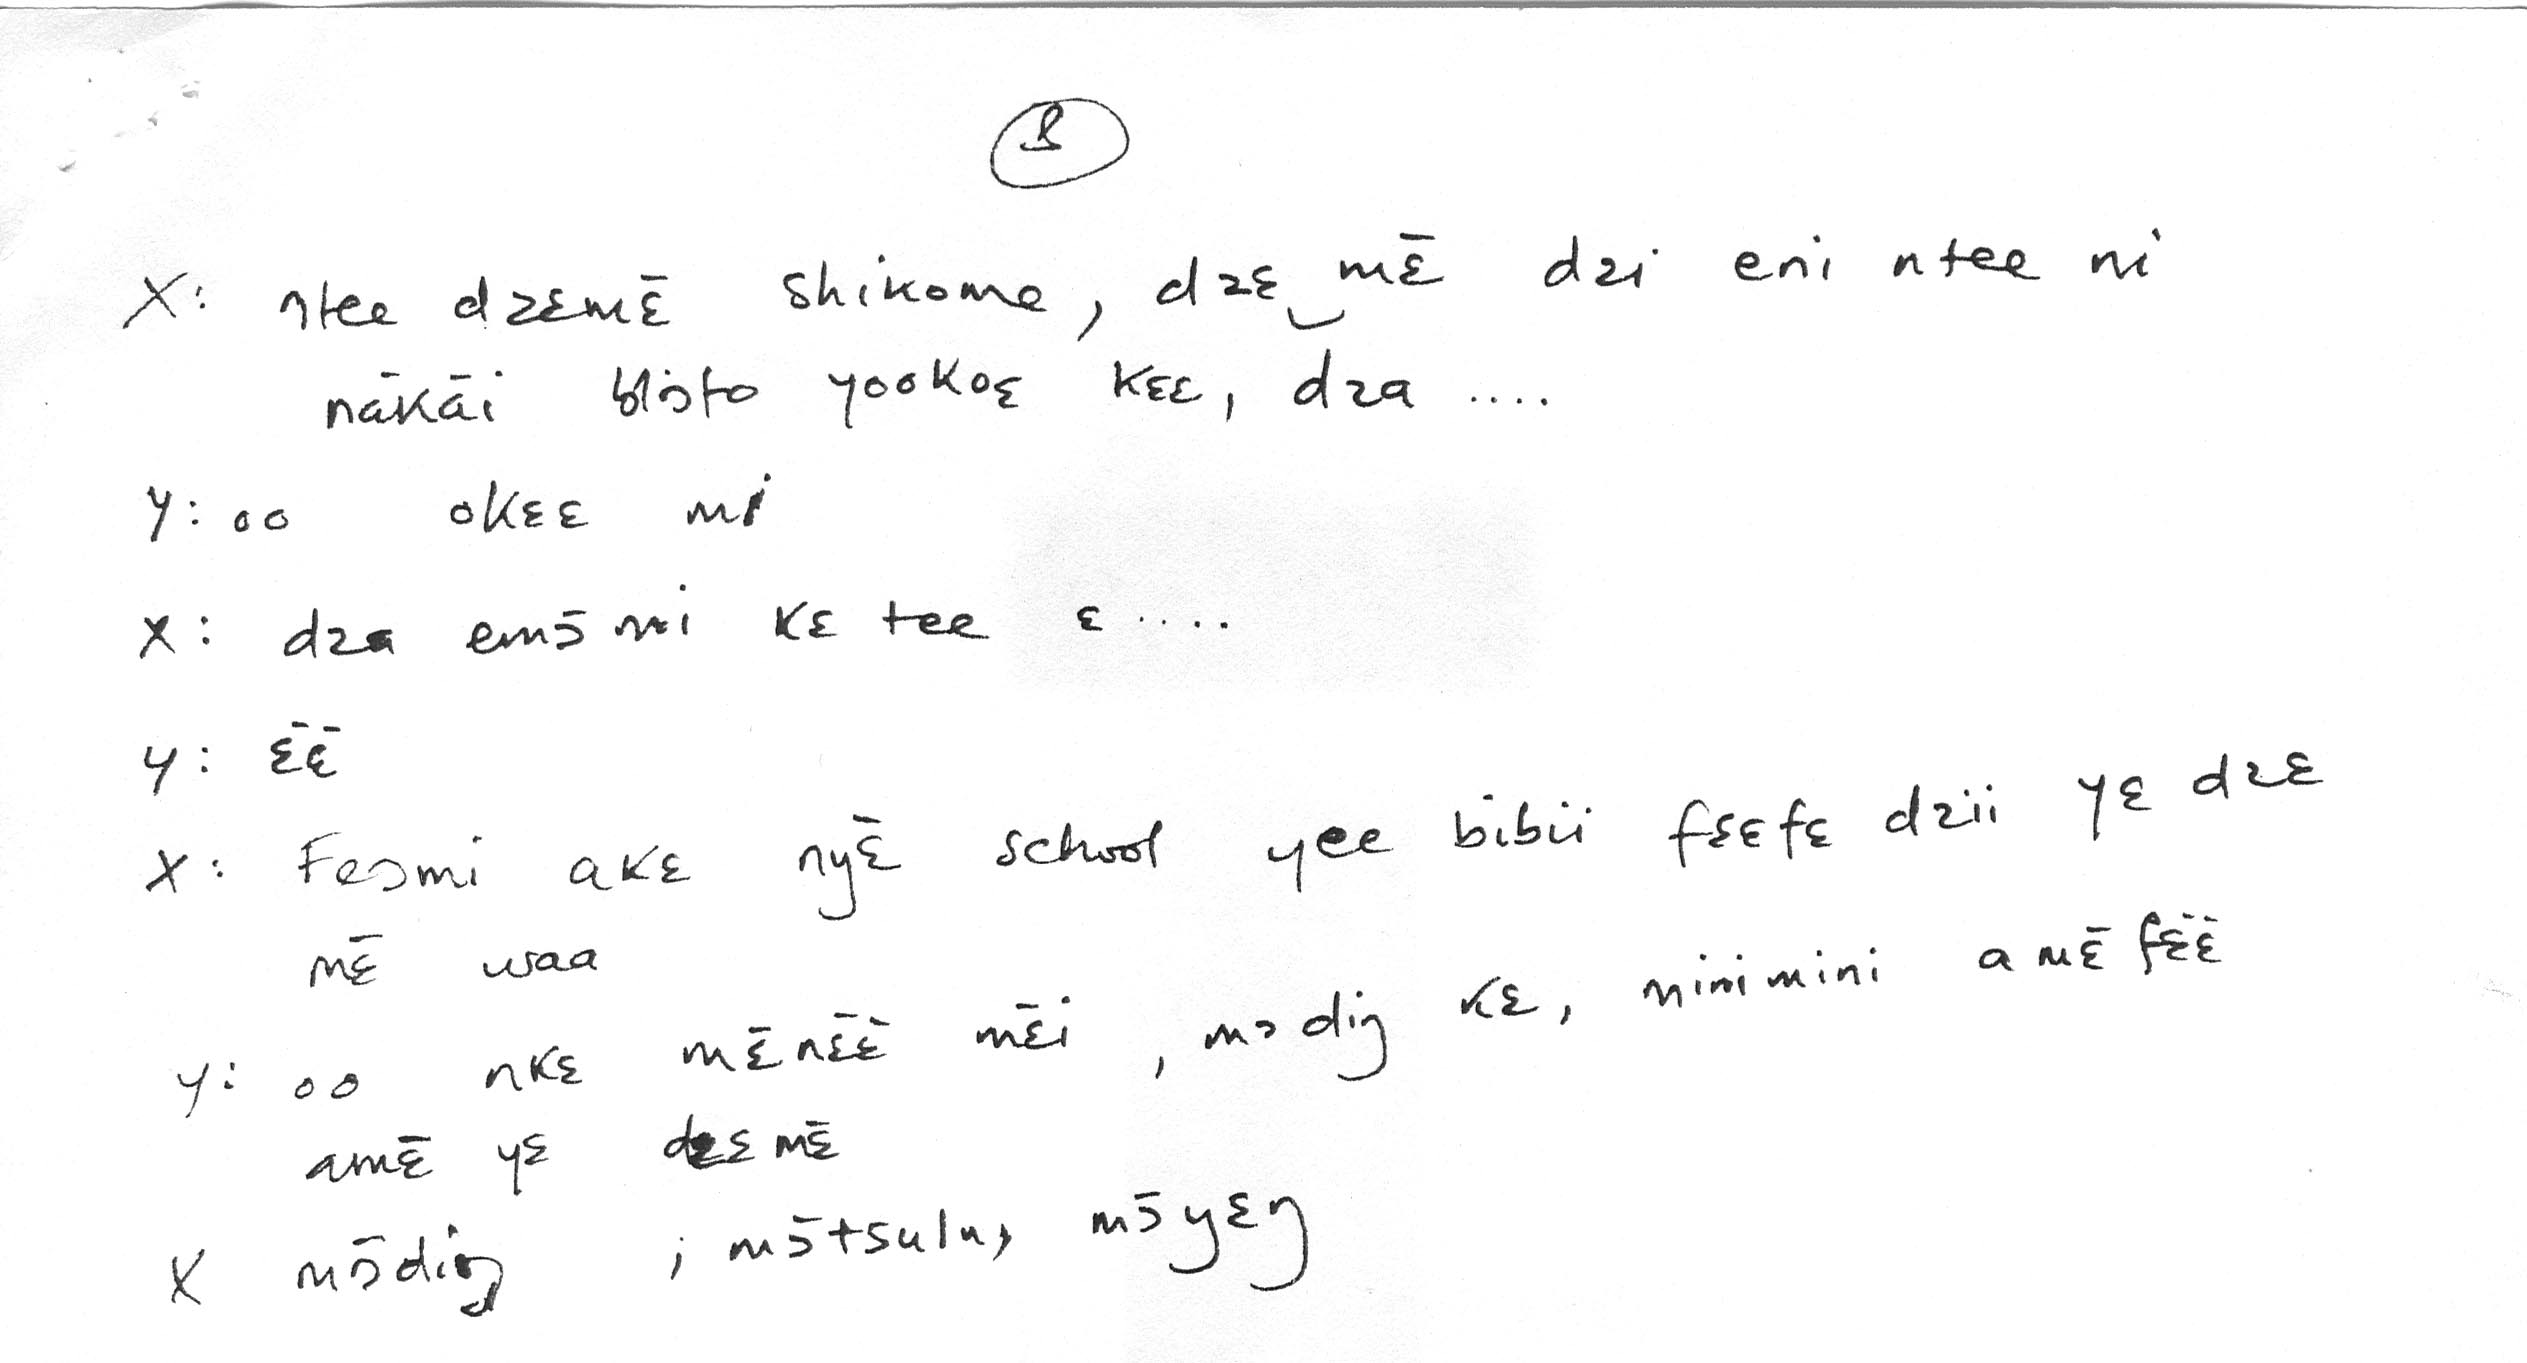 8
X: ntee dzɛmɛ̄ shikome, dzɛ mɛ̄ dzi eni ntee ni
nākāi blɔ̄to yookoɛ kɛɛ, dza ....
Y: oo okɛɛ mi
X: dza emɔ̄ ni kɛ tee ɛ ....
Y: ɛ̄ɛ̄
X: Feɔmi akɛ nyɛ̄ school yee bibii fɛɛfɛ dzii yɛ dzɛ
mɛ̄ waa
Y: oo nkɛ mɛ̄nɛ̄ɛ̄ mɛ̄i, mɔdiŋ kɛ, minimini amɛ̄ fɛ̄ɛ̄
amɛ̄ yɛ dzɛmɛ̄
X mɔ̄diŋ, mɔ̄tsulu, mɔ̄yɛŋ